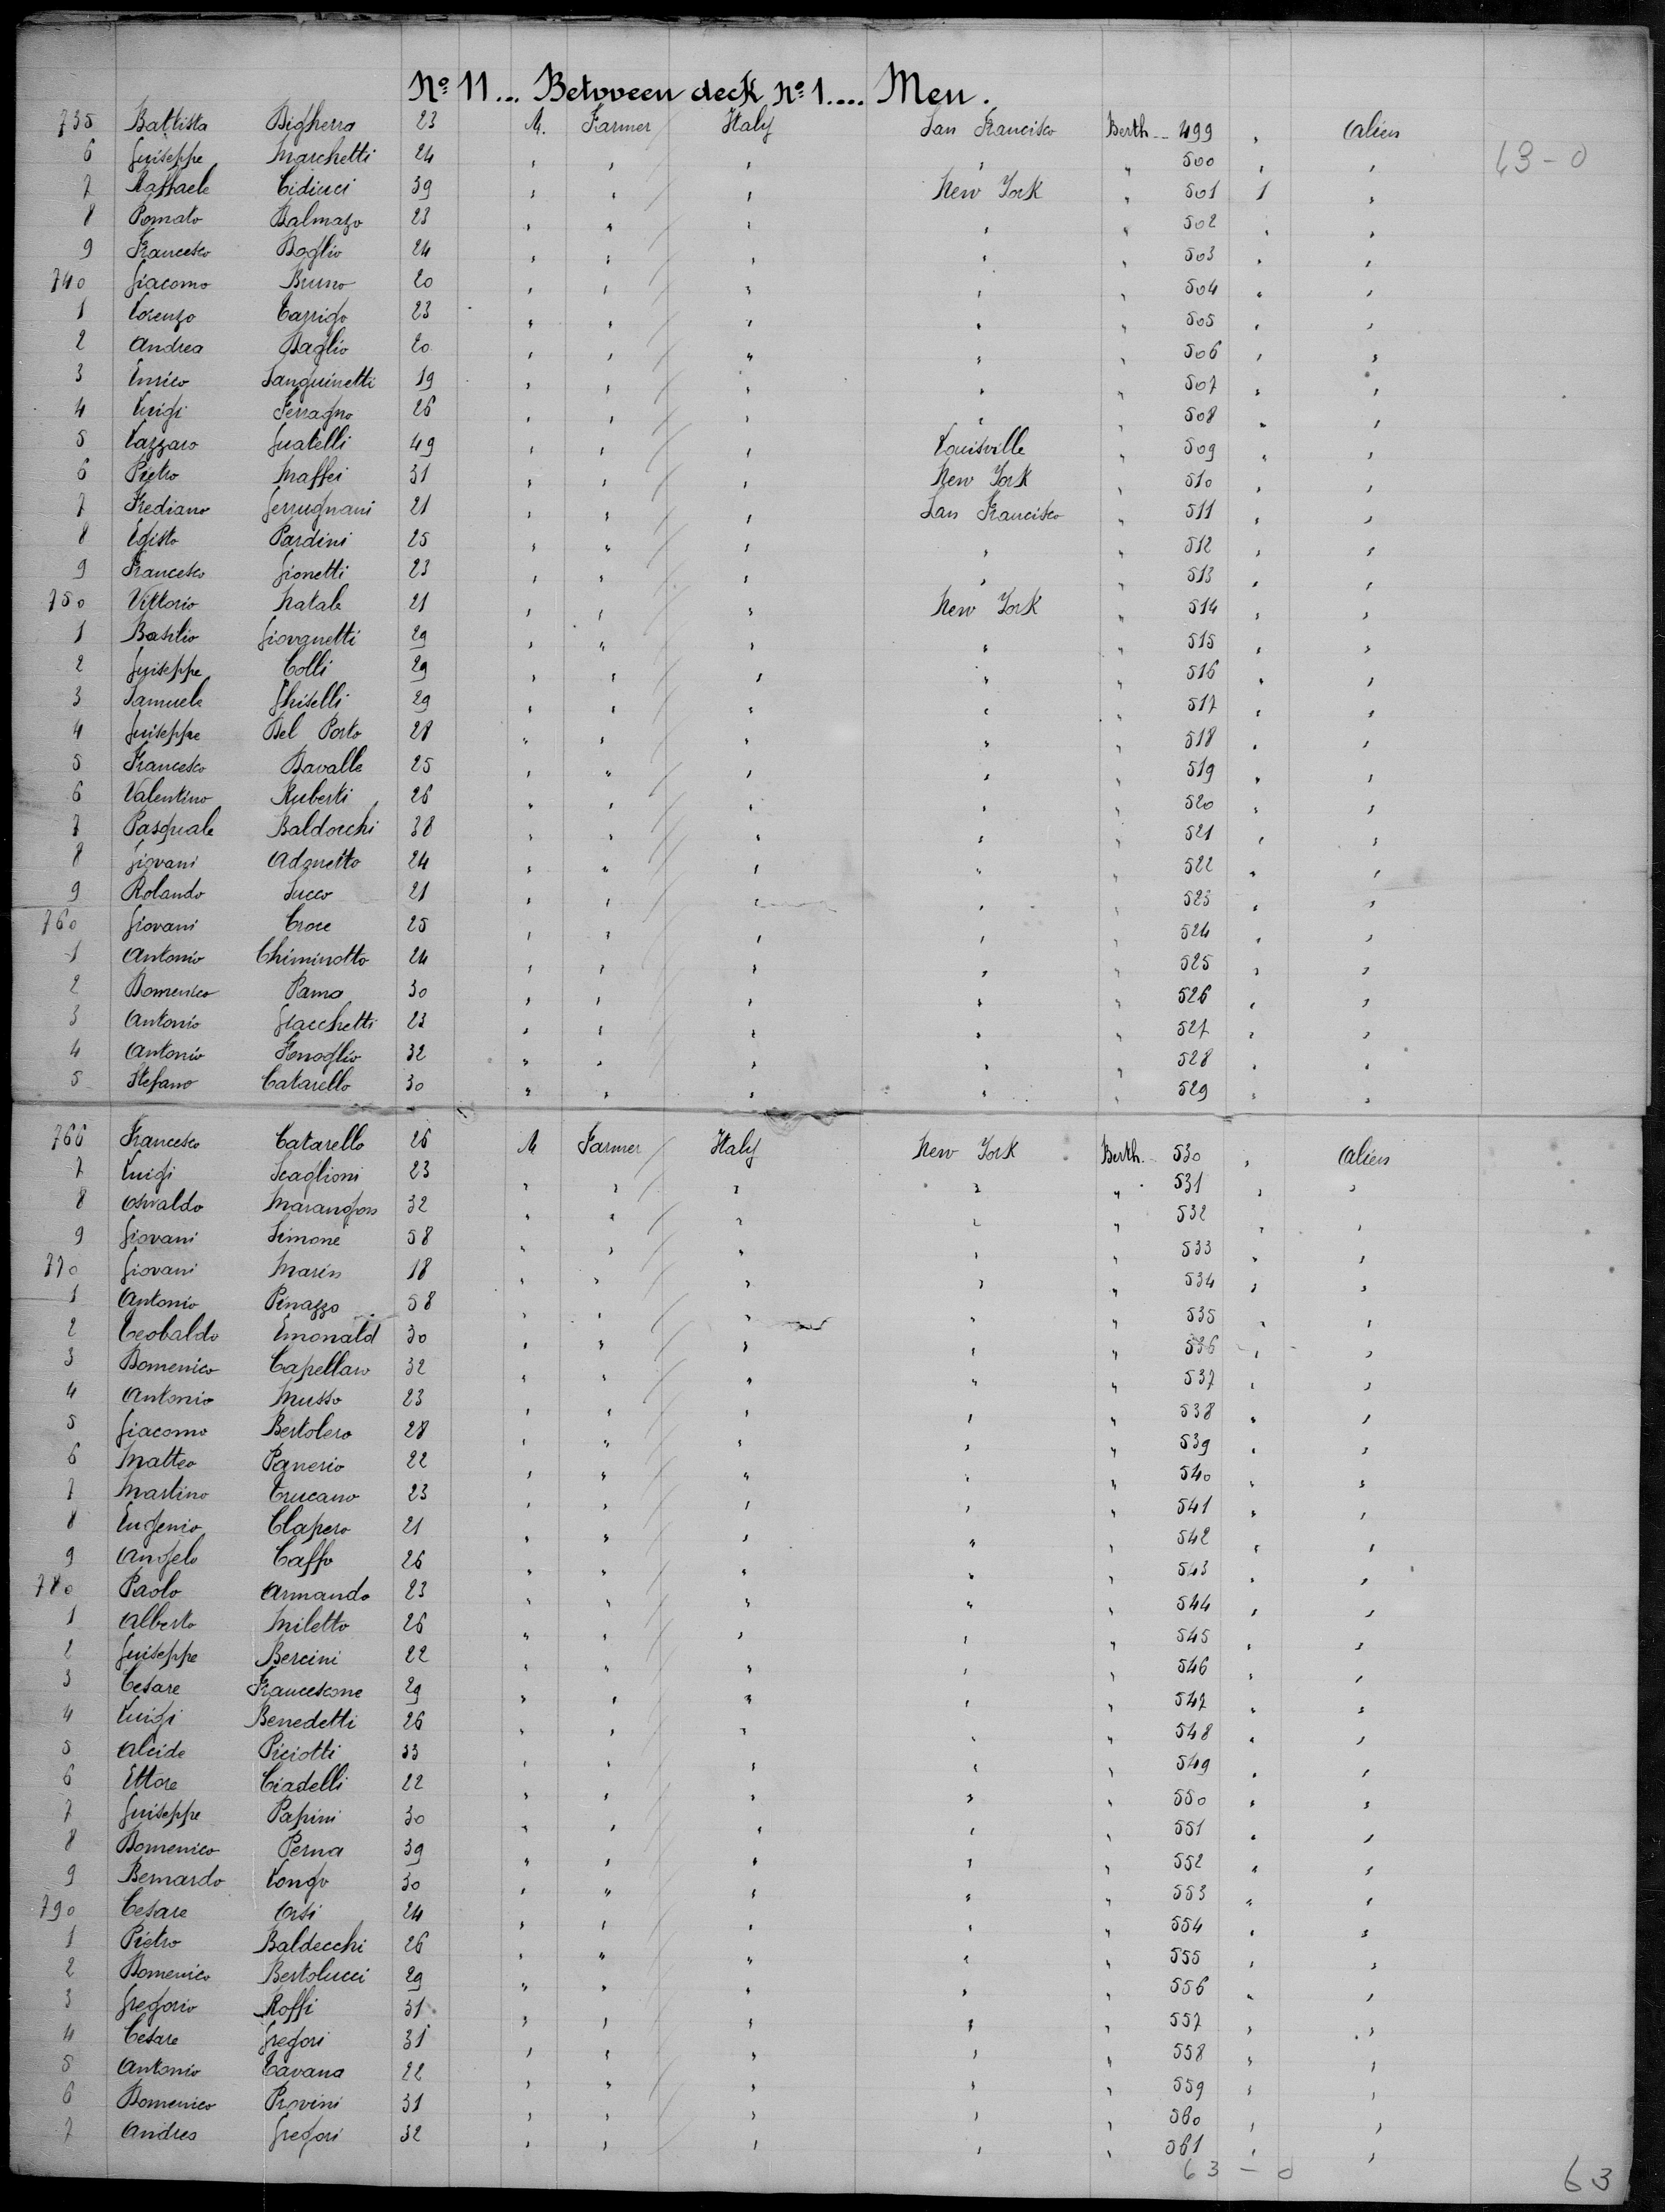 Nº 11... Betvveen deck nº 1.... Men.
735 Battista Bigherra 23 M. Farmer Italy San Francisco Berth 499 " Alien
6 Guiseppe Marchetti 24 " " " " " 500 " " 63-0
7 Raffaele Cidiuci 39 " " " New York " 501 1 "
8 Pomato Balmazo 23 " " " " " 502 " "
9 Francesco Boglio 24 " " " " " 503 " "
740 Giacomo Bruno 20 " " " " " 504 " "
1 Lorenzo Carrigo 23 " " " " " 505 " "
2 Andrea Baglio 20 " " " " " 506 " "
3 Enrico Sanguinetti 19 " " " " " 507 " "
4 Luigi Ferragno 26 " " " " " 508 " "
5 Lazzaro Guatelli 49 " " " Louisville " 509 " "
6 Pietro Maffei 31 " " " New York " 510 " "
7 Frediano Gerrugnani 21 " " " San Francisco " 511 " "
8 Egisto Pardini 25 " " " " " 512 " "
9 Francesco Gionetti 23 " " " " " 513 " "
750 Vittorio Natale 21 " " " New York " 514 " "
1 Basilio Giovanetti 29 " " " " " 515 " "
2 Guiseppe Colli 29 " " " " " 516 " "
3 Samuele Ghiselli 29 " " " " " 517 " "
4 Guiseppe Del Porto 28 " " " " " 518 " "
5 Francesco Bavalle 25 " " " " " 519 " "
6 Valentino Ruberti 26 " " " " " 520 " "
7 Pasquale Baldocchi 38 " " " " " 521 " "
8 Giovani 24 " " " " " 522 " "
9 Rolando Succo 21 " " " " " 523 " "
760 Giovani Croce 25 " " " " " 524 " "
1 Antonio Chiminotto 24 " " " " " 525 " "
2 Domenico Pama 30 " " " " " 526 " "
3 Antonio Giacchetti 23 " " " " " 527 " "
4 Antonio Fenoglio 32 " " " " " 528 " "
5 Stefano Catarello 30 " " " " " 529 " "
766 Francesco Catarello 26 M Farmer Italy New York Berth. 530 " Alien
7 Luigi Scaglioni 23 " " " " " 531 " "
8 Osvaldo Marangon 32 " " " " " 532 " "
9 Giovani Simone 58 " " " " " 533 " "
770 Giovani Marin 18 " " " " " 534 " "
1 Antonio Pinazzo 58 " " " " " 535 " "
2 Teobaldo Emonald 30 " " " " " 536 " "
3 Domenico Capellaro 32 " " " " " 537 " "
4 Antonio Musso 23 " " " " " 538 " "
5 Giacomo Bertolero 28 " " " " " 539 " "
6 Matteo Panerio 22 " " " " " 540 " "
7 Martino Trucano 23 " " " " " 541 " "
8 Eugenio Clapero 21 " " " " " 542 " "
9 Angelo Caffo 26 " " " " " 543 " "
780 Paolo Armando 23 " " " " " 544 " "
1 Alberto Miletto 26 " " " " " 545 " "
2 Guiseppe Bercini 22 " " " " " 546 " "
3 Cesare Francescone 29 " " " " " 547 " "
4 Luigi Benedetti 26 " " " " " 548 " "
5 Alcide Piciotti 33 " " " " " 549 " "
6 Ettore Ciadelli 22 " " " " " 550 " "
7 Guiseppe Papini 30 " " " " " 551 " "
8 Domenico Perna 39 " " " " " 552 " "
9 Bernardo Longo 30 " " " " " 553 " "
790 Cesare Orsi 24 " " " " " 554 " "
1 Pietro Baldecchi 26 " " " " " 555 " "
2 Domenico Bertolucci 29 " " " " " 556 " "
3 Gregorio Roffi 31 " " " " " 557 " "
4 Cesare Gregori 31 " " " " " 558 " "
5 Antonio Cavana 22 " " " " " 559 " "
6 Domenico Provini 31 " " " " " 560 " "
7 Andrea Gregori 32 " " " " " 561 " "
63 - 0
63